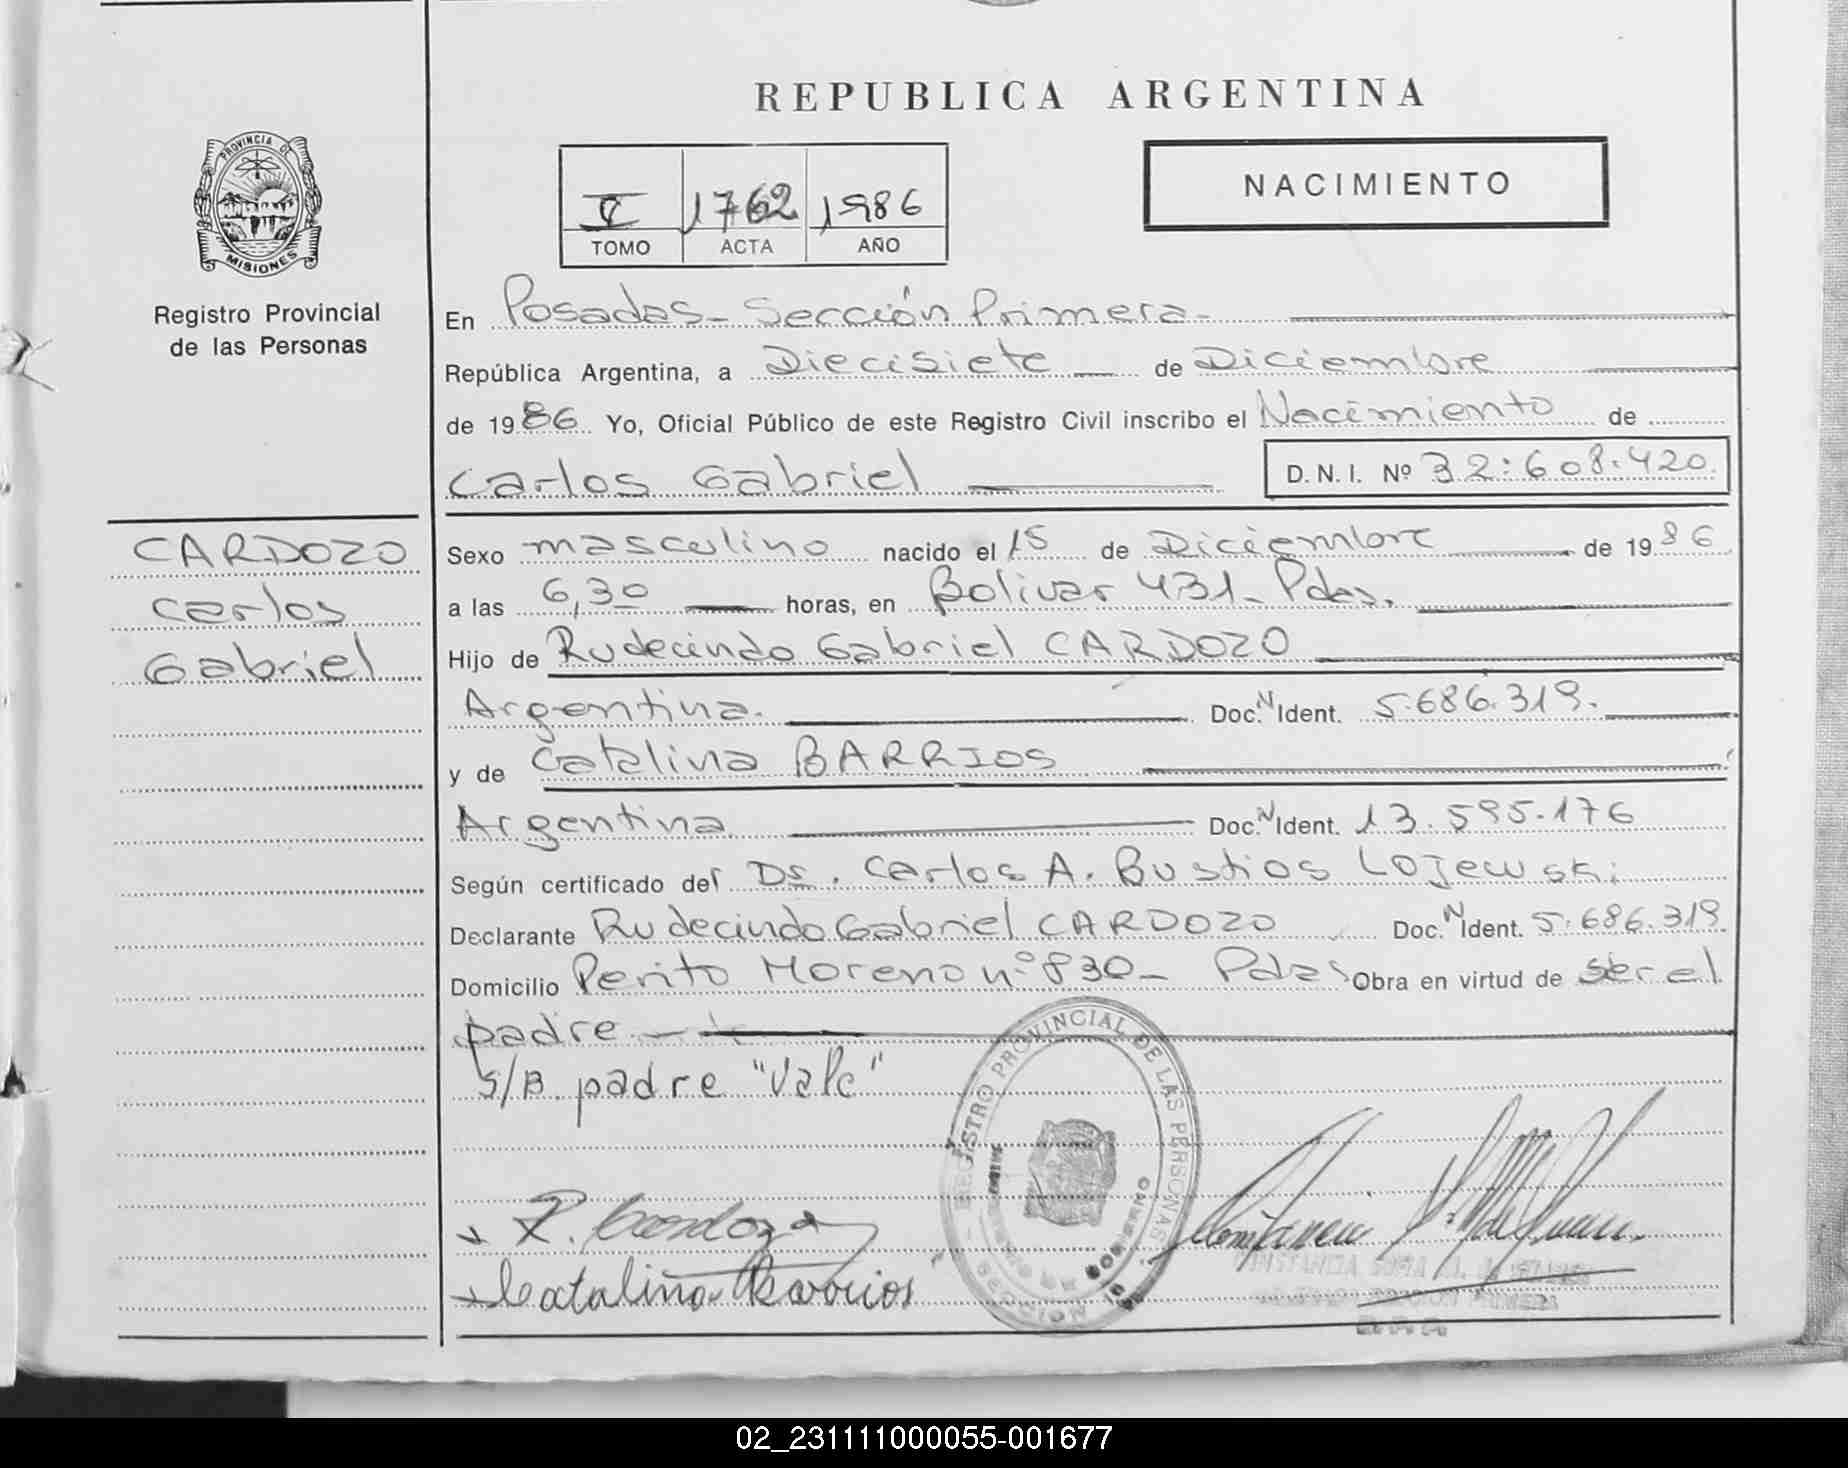 REPUBLICA ARGENTINA
PROVINCIA DE
MISIONES
Registro Provincial
de las Personas
1762 1986
TOMO ACTA AÑO
NACIMIENTO
En Posadas - Sección Primera -
República Argentina, a Diecisiete de Diciembre
de 1986. Yo, Oficial Público de este Registro Civil inscribo el Nacimiento de
Carlos Gabriel D. N. I. Nº 32:608.420.
CARDOZO
Carlos
Gabriel
Sexo masculino nacido el 15 de Diciembre de 1986
a las 6,30 horas, en Bolivar 431 - Pdas.
Hijo de Rudecindo Gabriel CARDOZO
Argentina. Doc. N Ident. 5.686.319.
y de Catalina BARRIOS
Argentina Doc. N Ident. 13.595.176
Según certificado del Dr. Carlos A. Bustios Lojewski
Declarante Rudecindo Gabriel CARDOZO Doc. N Ident. 5.686.319
Domicilio Perito Moreno nº 830 - Pdas Obra en virtud de ser el
padre
S/B. padre "Vale"
REGISTRO PROVINCIAL DE LAS PERSONAS
R. Cardozo
Catalina Barrios
02_231111000055-001677